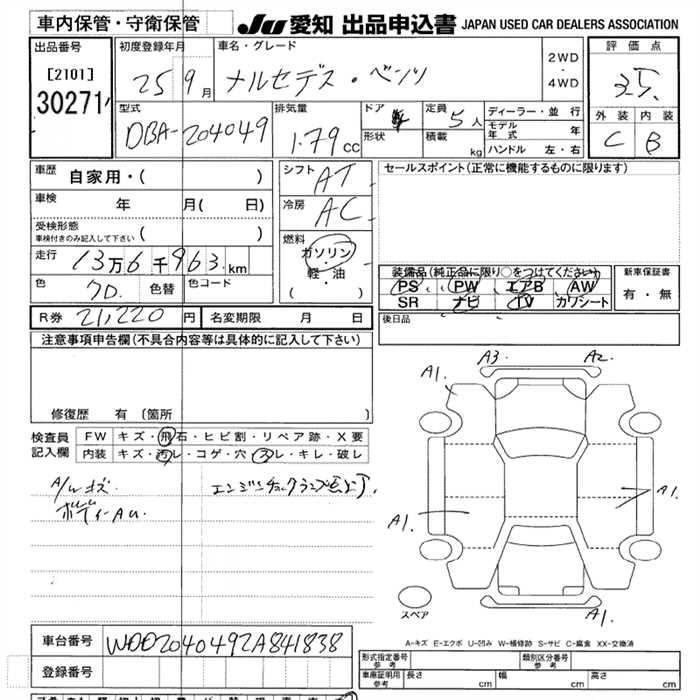 車内保管・守衛保管
JU 愛知 出品申込書 JAPAN USED CAR DEALERS ASSOCIATION
出品番号
[2101]
30271
初度登録年月
25 9月
車名・グレード
メルセデス・ベンツ
2WD
・
4WD
評価点
3.5
外装 内装
C B
型式
DBA-204049
排気量
1.79cc
ドア
形状
定員 5人
積載 kg
ディーラー・並行
モデル年式 年
ハンドル 左・右
車歴 自家用・( )
車検 年 月( 日)
受検形態
車検付きのみ記入して下さい ( )
走行 13万6千963km
色 クロ. 色替 色コード
シフト AT
冷房 AC
燃料
ガソリン
・
軽・油
( )
セールスポイント(正常に機能するものに限ります)
装備品(純正品に限り○をつけてください)
PS PW エアB AW
SR ナビ TV カワシート
新車保証書
有・無
後日品
R券 21,220円 名変期限 月 日
注意事項申告欄(不具合内容等は具体的に記入して下さい)
修復歴 有〔箇所 〕
検査員
記入欄
FW キズ・飛石・ヒビ割・リペア跡・X要
内装 キズ・汚レ・コゲ・穴・スレ・キレ・破レ
A/wキズ
エンジンチェックランプ点灯.
A1.
A3.
A2.
A1.
A1.
A1.
スペア
A-キズ E-エクボ U-凹み W-補修跡 S-サビ C-腐食 XX-交換済
車台番号 WDD2040492A841838
登録番号
形式指定番号
参考
類別区分番号
参考
車庫証明用
参考
長さ cm 幅 cm 高さ cm